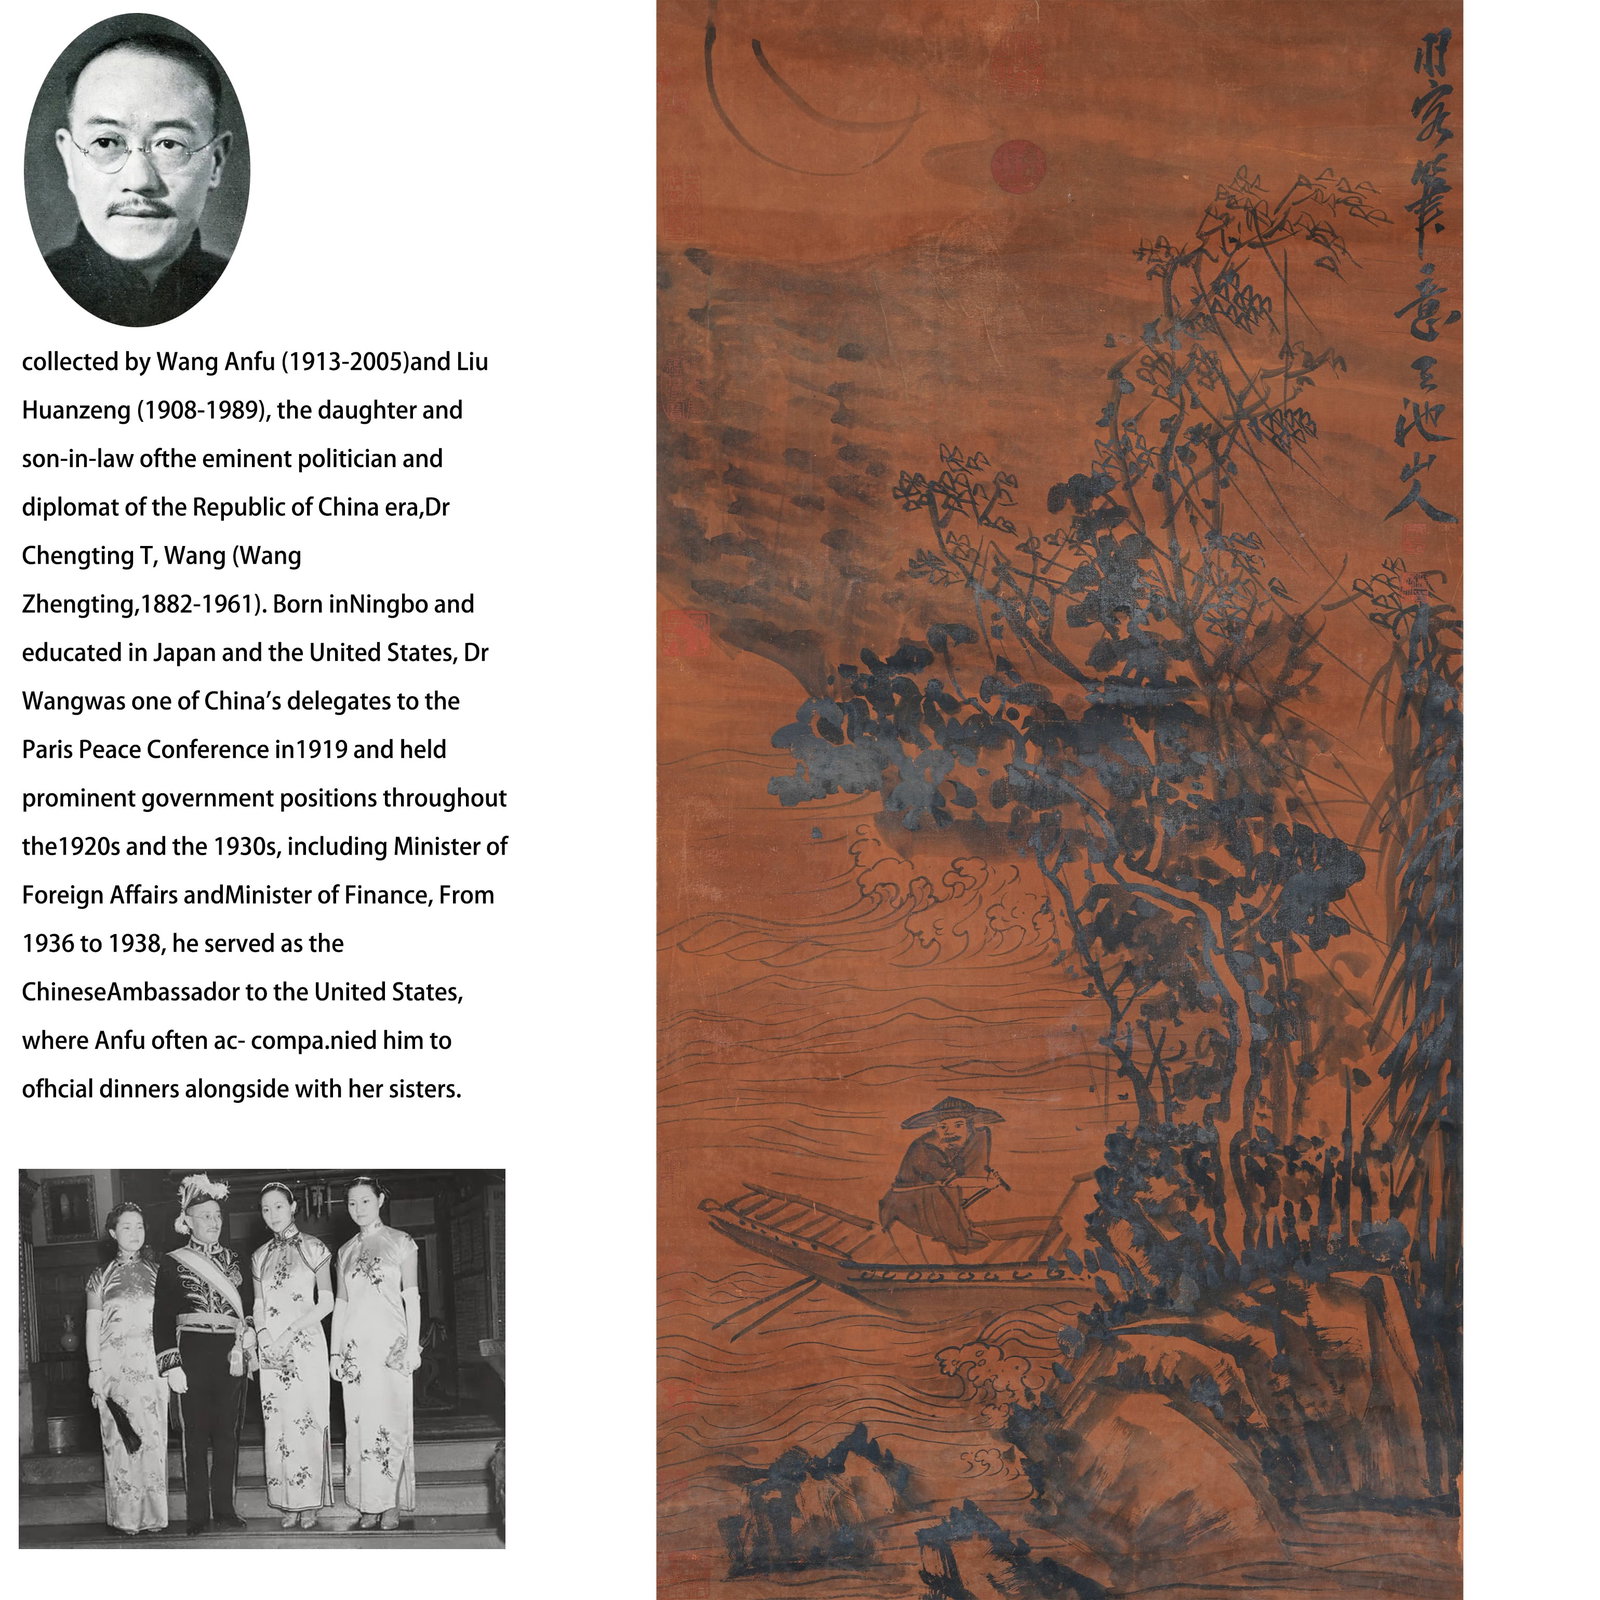 collected by Wang Anfu (1913-2005)and Liu
Huanzeng (1908-1989), the daughter and
son-in-law ofthe eminent politician and
diplomat of the Republic of China era,Dr
Chengting T, Wang (Wang
Zhengting,1882-1961). Born inNingbo and
educated in Japan and the United States, Dr
Wangwas one of China’s delegates to the
Paris Peace Conference in1919 and held
prominent government positions throughout
the1920s and the 1930s, including Minister of
Foreign Affairs andMinister of Finance, From
1936 to 1938, he served as the
ChineseAmbassador to the United States,
where Anfu often ac- compa.nied him to
ofhcial dinners alongside with her sisters.
用害筆意天池山人